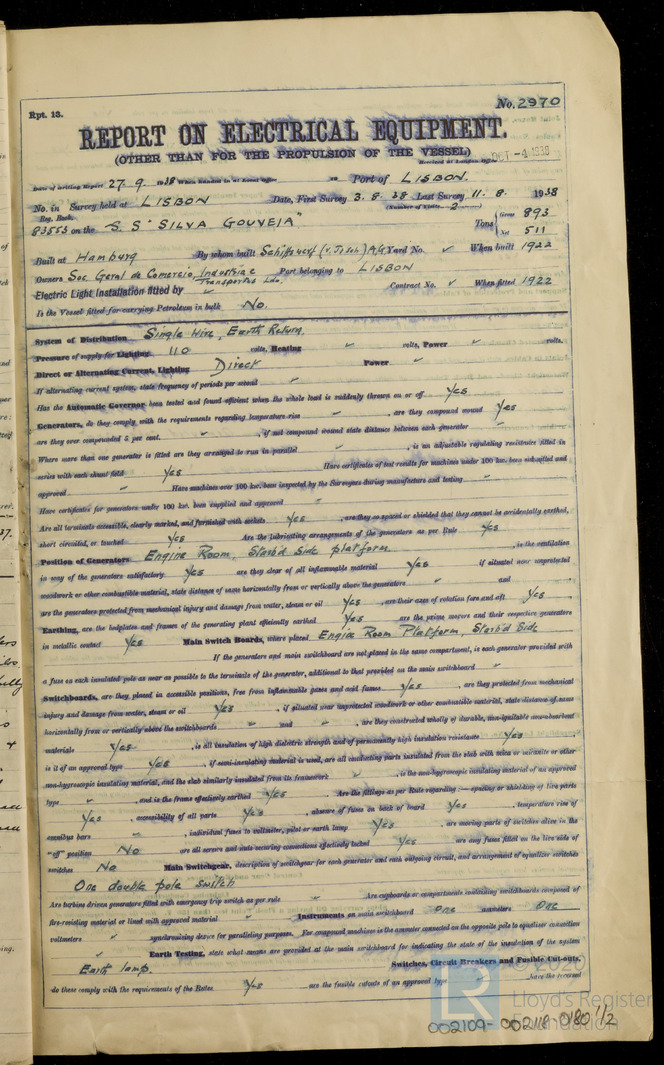 Rpt. 13.
No. 2970
REPORT ON ELECTRICAL EQUIPMENT.
(OTHER THAN FOR THE PROPULSION OF THE VESSEL)
Received at London Office OCT -4 1938
Date of writing Report 27. 9. 1938 When handed in at Local Office to Port of LISBON.
No. in Survey held at LISBON Date, First Survey 3. 8. 38 Last Survey 11. 8. 1938
Reg. Book. (Number of Visits 2 )
83553 on the "S.S "SILVA GOUVEIA" Tons Gross 893 Net 511
Built at Hamburg By whom built Schiffswerf (v. Jisch) A/G Yard No. ✓ When built 1922
Owners Soc Geral de Comercio, Industria e Transportes Lda. Port belonging to LISBON
Electric Light Installation fitted by ✓ Contract No. ✓ When fitted 1922
Is the Vessel fitted for carrying Petroleum in bulk No.
System of Distribution Single Wire, Earth Return.
Pressure of supply for Lighting 110 volts, Heating ✓ volts, Power ✓ volts.
Direct or Alternating Current, Lighting Direct Power ✓
If alternating current system, state frequency of periods per second ✓
Has the Automatic Governor been tested and found efficient when the whole load is suddenly thrown on or off Yes
Generators, do they comply with the requirements regarding temperature rise ✓ , are they compound wound Yes
are they over compounded 5 per cent. ✓ , if not compound wound state distance between each generator ✓
Where more than one generator is fitted are they arranged to run in parallel ✓ , is an adjustable regulating resistance fitted in
series with each shunt field Yes Have certificates of test results for machines under 100 kw. been submitted and
approved ✓ Have machines over 100 kw. been inspected by the Surveyors during manufacture and testing ✓
Have certificates for generators under 100 kw. been supplied and approved ✓
Are all terminals accessible, clearly marked, and furnished with sockets Yes , are they so spaced or shielded that they cannot be accidentally earthed,
short circuited, or touched Yes Are the lubricating arrangements of the generators as per Rule Yes
Position of Generators Engine Room, Starb'd Side platform. , is the ventilation
in way of the generators satisfactory Yes are they clear of all inflammable material Yes if situated near unprotected
woodwork or other combustible material, state distance of same horizontally from or vertically above the generators ✓ and ✓
are the generators protected from mechanical injury and damage from water, steam or oil Yes , are their axes of rotation fore and aft Yes
Earthing, are the bedplates and frames of the generating plant efficiently earthed Yes are the prime movers and their respective generators
in metallic contact Yes Main Switch Boards, where placed Engine Room Platform Starb'd Side
If the generators and main switchboard are not placed in the same compartment, is each generator provided with
a fuse on each insulated pole as near as possible to the terminals of the generator, additional to that provided on the main switchboard ✓
Switchboards, are they placed in accessible positions, free from inflammable gases and acid fumes Yes , are they protected from mechanical
injury and damage from water, steam or oil Yes , if situated near unprotected woodwork or other combustible material, state distance of same
horizontally from or vertically above the switchboards ✓ and ✓ , are they constructed wholly of durable, non-ignitable non-absorbent
materials Yes , is all insulation of high dielectric strength and of permanently high insulation resistance Yes
is it of an approved type Yes , if semi-insulating material is used, are all conducting parts insulated from the slab with mica or micanite or other
non-hygroscopic insulating material, and the slab similarly insulated from its framework ✓ , is the non-hygroscopic insulating material of an approved
type ✓ , and is the frame effectively earthed Yes Are the fittings as per Rule regarding :— spacing or shielding of live parts
Yes , accessibility of all parts Yes , absence of fuses on back of board Yes , temperature rise of
omnibus bars ✓ , individual fuses to voltmeter, pilot or earth lamp Yes , are moving parts of switches alive in the
"off" position No are all screws and nuts securing connections effectively locked Yes are any fuses fitted on the live side of
switches No Main Switchgear, description of switchgear for each generator and each outgoing circuit, and arrangement of equalizer switches
One double pole switch
Are turbine driven generators fitted with emergency trip switch as per rule ✓ Are cupboards or compartments containing switchboards composed of
fire-resisting material or lined with approved material ✓ Instruments on main switchboard one ammeters One
voltmeters ✓ synchronising device for paralleling purposes. For compound machines is the ammeter connected on the opposite pole to equaliser connection
✓ Earth Testing, state what means are provided at the main switchboard for indicating the state of the insulation of the system
Earth lamp. Switches, Circuit Breakers and Fusible Cut-outs,
do these comply with the requirements of the Rules Yes are the fusible cutouts of an approved type , have the reversed
© 2020
LR
Lloyd's Register
Foundation
002109-002118-0180 1/2